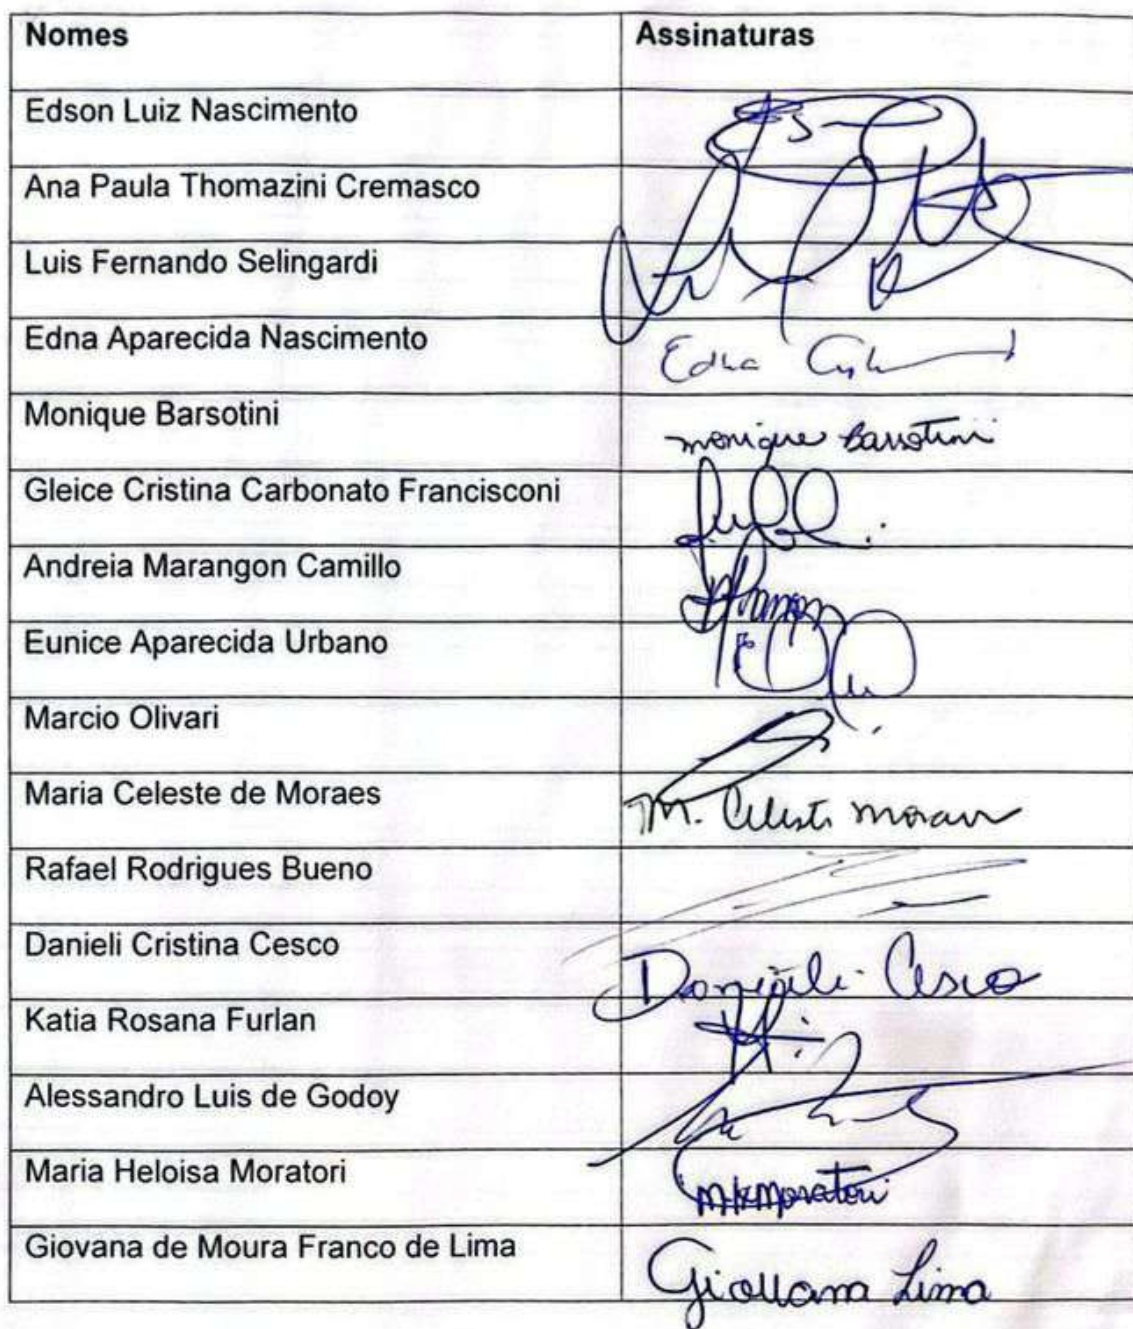 Nomes Assinaturas
Edson Luiz Nascimento
Ana Paula Thomazini Cremasco
Luis Fernando Selingardi
Edna Aparecida Nascimento Edna
Monique Barsotini monique Barsotini
Gleice Cristina Carbonato Francisconi
Andreia Marangon Camillo
Eunice Aparecida Urbano
Marcio Olivari
Maria Celeste de Moraes M. Celeste Moraes
Rafael Rodrigues Bueno
Danieli Cristina Cesco Danieli Cesco
Katia Rosana Furlan
Alessandro Luis de Godoy
Maria Heloisa Moratori MHMoratori
Giovana de Moura Franco de Lima Giovana Lima